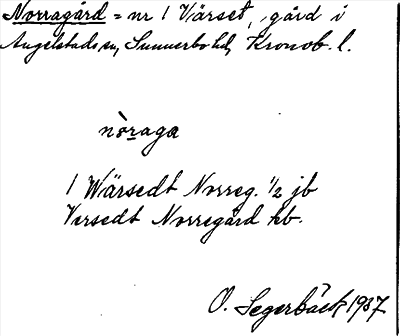 Norragård = nr 1 Värset, gård i
Angelstads sn, Sunnerbo hd, Kronob. l.
nòraga
1 Wärsedt Norreg. 1/2 jb
Versedt Norregård kb.
O. Segerbäck 1937